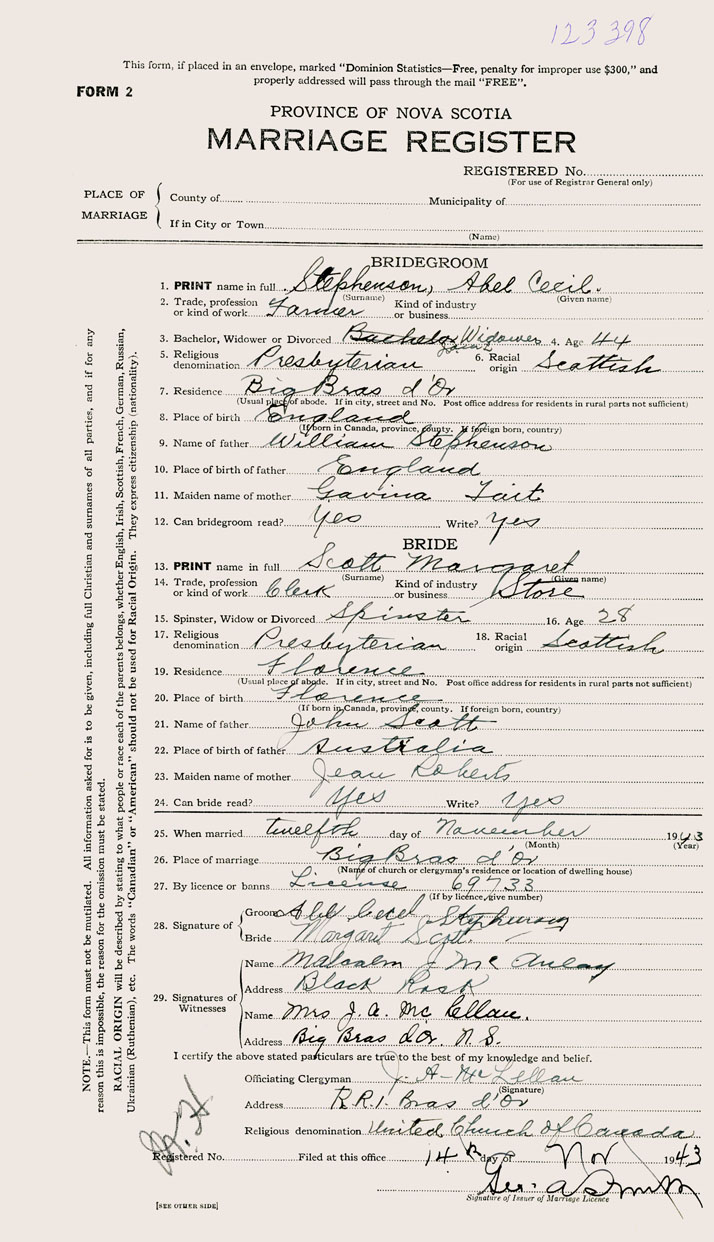 123398
This form, if placed in an envelope, marked "Dominion Statistics—Free, penalty for improper use $300," and
properly addressed will pass through the mail "FREE".
FORM 2
PROVINCE OF NOVA SCOTIA
MARRIAGE REGISTER
REGISTERED No.
(For use of Registrar General only)
PLACE OF MARRIAGE
County of Municipality of
If in City or Town
(Name)
BRIDEGROOM
1. PRINT name in full Stephenson, Abel Cecil.
(Surname) (Given name)
2. Trade, profession or kind of work Farmer Kind of industry or business
3. Bachelor, Widower or Divorced Bachelor Widower 4. Age 44
5. Religious denomination Presbyterian 6. Racial origin Scottish
7. Residence Big Bras d'Or
(Usual place of abode. If in city, street and No. Post office address for residents in rural parts not sufficient)
8. Place of birth England
(If born in Canada, province, county. If foreign born, country)
9. Name of father William Stephenson
10. Place of birth of father England
11. Maiden name of mother Gavina Tait
12. Can bridegroom read? Yes Write? Yes
BRIDE
13. PRINT name in full Scott Margaret
(Surname) (Given name)
14. Trade, profession or kind of work Clerk Kind of industry or business Store
15. Spinster, Widow or Divorced Spinster 16. Age 28
17. Religious denomination Presbyterian 18. Racial origin Scottish
19. Residence Florence
(Usual place of abode. If in city, street and No. Post office address for residents in rural parts not sufficient)
20. Place of birth Florence
(If born in Canada, province, county. If foreign born, country)
21. Name of father John Scott
22. Place of birth of father Australia
23. Maiden name of mother Jean Roberts
24. Can bride read? Yes Write? Yes
25. When married twelfth day of November 1943
(Month) (Year)
26. Place of marriage Big Bras d'Or
(Name of church or clergyman's residence or location of dwelling house)
27. By licence or banns License 69733
(If by licence, give number)
28. Signature of Groom Abel Cecil Stephenson
Bride Margaret Scott.
29. Signatures of Witnesses
Name Malcolm J McAulay
Address Black Rock
Name Mrs J. A. McLellan.
Address Big Bras d'Or. N.S.
I certify the above stated particulars are true to the best of my knowledge and belief.
Officiating Clergyman J. A. McLellan
(Signature)
Address R.R.1. Bras d'Or
Religious denomination United Church of Canada
Registered No. Filed at this office 14th day of Nov 1943
Signature of Issuer of Marriage Licence
[SEE OTHER SIDE]
NOTE.—This form must not be mutilated. All information asked for is to be given, including full Christian and surnames of all parties, and if for any
reason this is impossible, the reason for the omission must be stated.
RACIAL ORIGIN will be described by stating to what people or race each of the parents belongs, whether English, Irish, Scottish, French, German, Russian,
Ukrainian (Ruthenian), etc. The words "Canadian" or "American" should not be used for Racial Origin. They express citizenship (nationality).